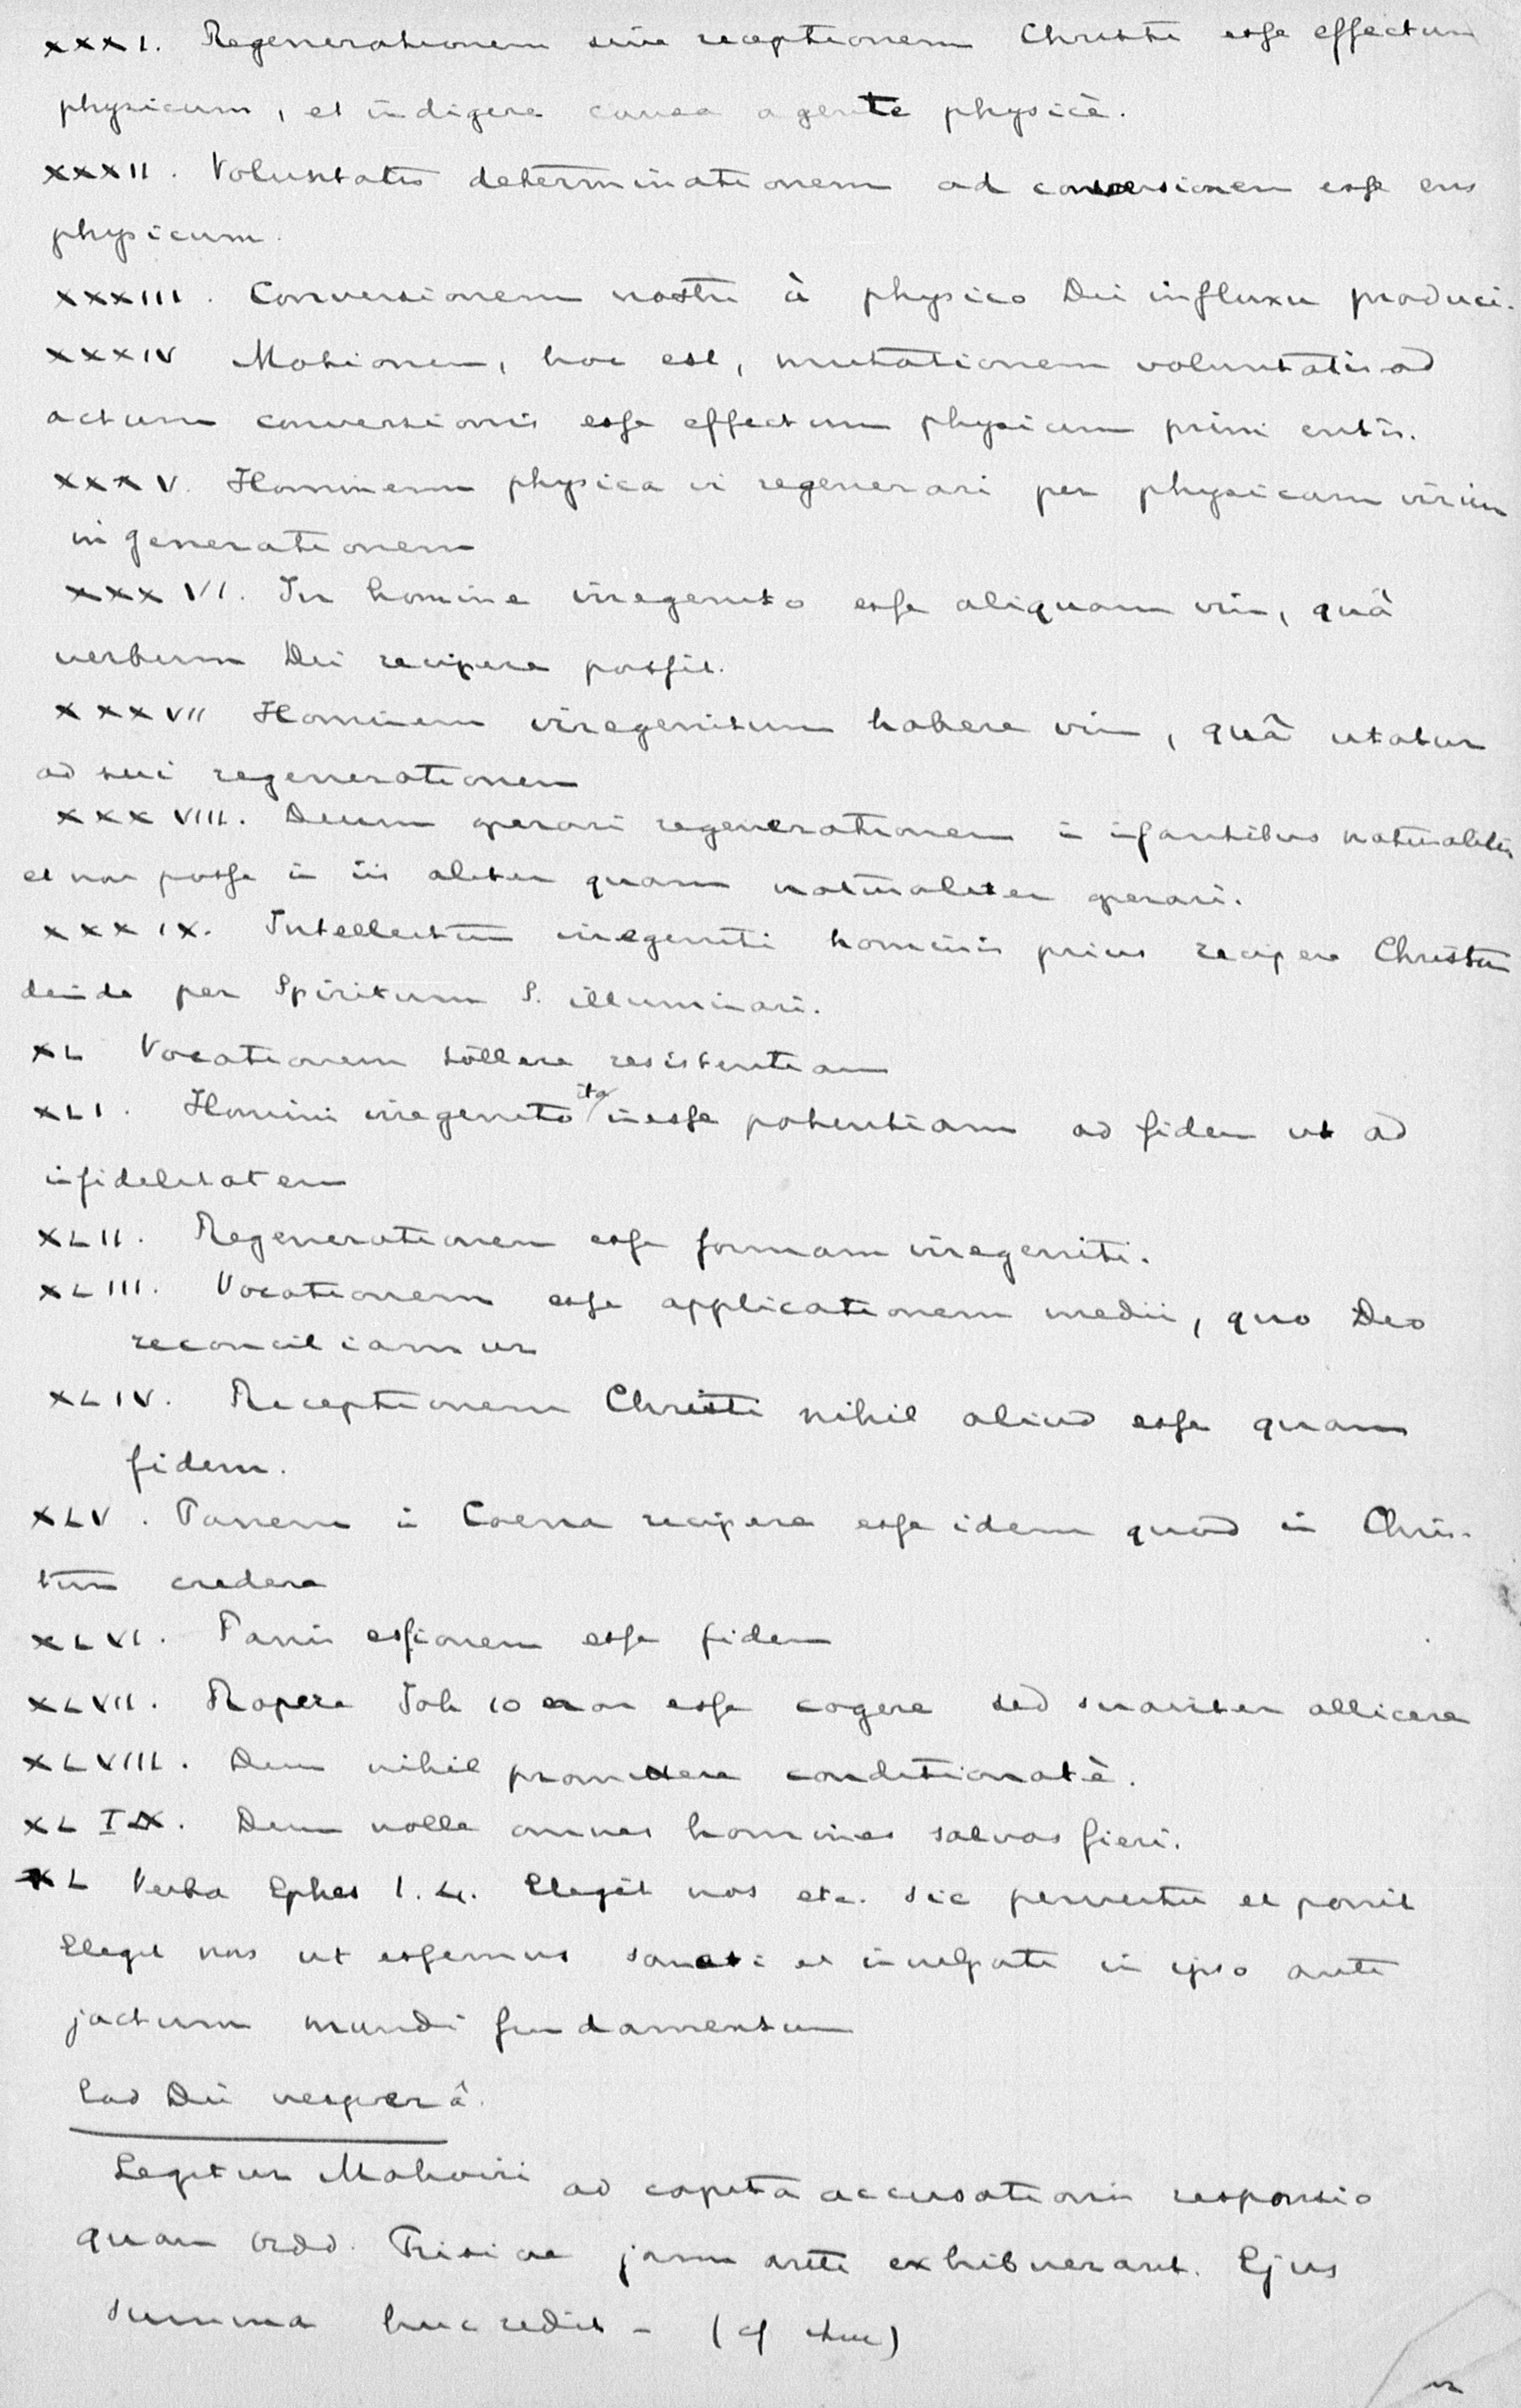 XXXI. Regenerationem sive receptionem Christi esse effectum
physicum, et indigere causa agente physicè.
XXXII. Voluntatis determinationem ad conversionem esse ens
physicum.
XXXIII. Conversionem nostri à physico Dei influxu produci.
XXXIV Motionem, hoc est, mutationem voluntatis ad
actum conversionis esse effectum physicum primi entis.
XXXV. Hominem physica vi regenerari per physicam virium
ingenerationem
XXXVI. In homine irregenito esse aliquam vim, quâ
verbum Dei recipere possit.
XXXVII Hominem irregenitum habere vim, quâ utatur
ad sui regenerationem
XXXVIII. Deum operari regenerationem in infantibus naturaliter
et non posse in iis aliter quam naturaliter operari.
XXXIX. Intellectum irregeniti hominis prius recipere Christum
deinde per Spiritum S. illuminari.
XL Vocationem tollere resistentiam
XLI. Homini irregenito ita inesse potentiam ad fidem ut ad
infidelitatem
XLII. Regenerationem esse formam irregeniti.
XLIII. Vocationem esse applicationem medii, quo Deo
reconciliamur
XLIV. Receptionem Christi nihil aliud esse quam
fidem.
XLV. Panem in Coena recipere esse idem quod in Chris-
tum credere
XLVI. Panis esionem esse fidem
XLVII. Rapere Joh 10 non esse cogere sed suaviter allicere
XLVIII. Deum nihil promittere conditionatè.
XLIX. Deum nolle omnes homines salvos fieri.
XL Verba Ephes 1.4. Elegit nos etc. sic pervertit et ponit
Elegit nos ut essemus sancti et inculpati in ipso ante
jactum mundi fundamentum
Ead Die vesperâ.
Legitur Makovii ad capita accusationis responsio
quam Ordd. Frisiae jam ante exhibuerant. Ejus
summa huc redit - (cf